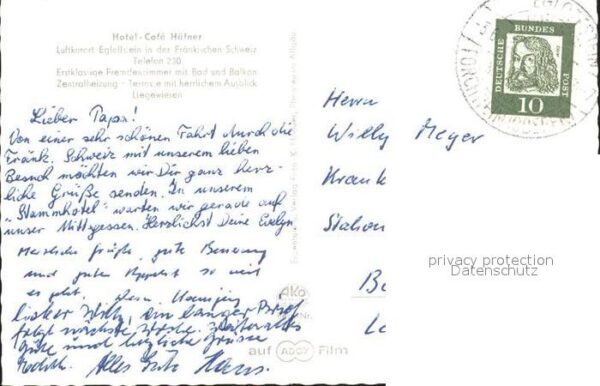 Hotel-Café Häfner
Luftkurort Egloffstein in der Fränkischen Schweiz
Telefon 230
Erstklassige Fremdenzimmer mit Bad und Balkon
Zentralheizung - Terrasse mit herrlichem Ausblick
Liegewiesen
DEUTSCHE BUNDES POST
10
Lieber Papa!
Von einer sehr schönen Fahrt durch die
Fränk. Schweiz mit unserem lieben
Besuch möchten wir Dir ganz herz-
liche Grüße senden. In unserem
"Stammhotel" warten wir gerade auf
unser Mittagessen. Herzlichst Deine Evelyn
Herzliche Grüße, gute Besserung
und guten Appetit so weit
es geht.
lieber Willy, ein langer Brief
folgt nächste Woche. Weiterhin alles
Gute und herzliche Grüsse
Alles Gute Hans.
Herrn
Willy Meyer
Krank
Station
auf ADOX Film
privacy protection
Datenschutz